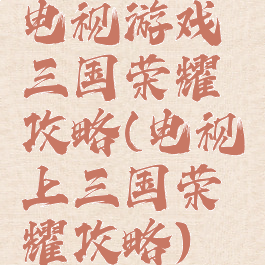 电视游戏
三国荣耀
攻略(电视
上三国荣
耀攻略)